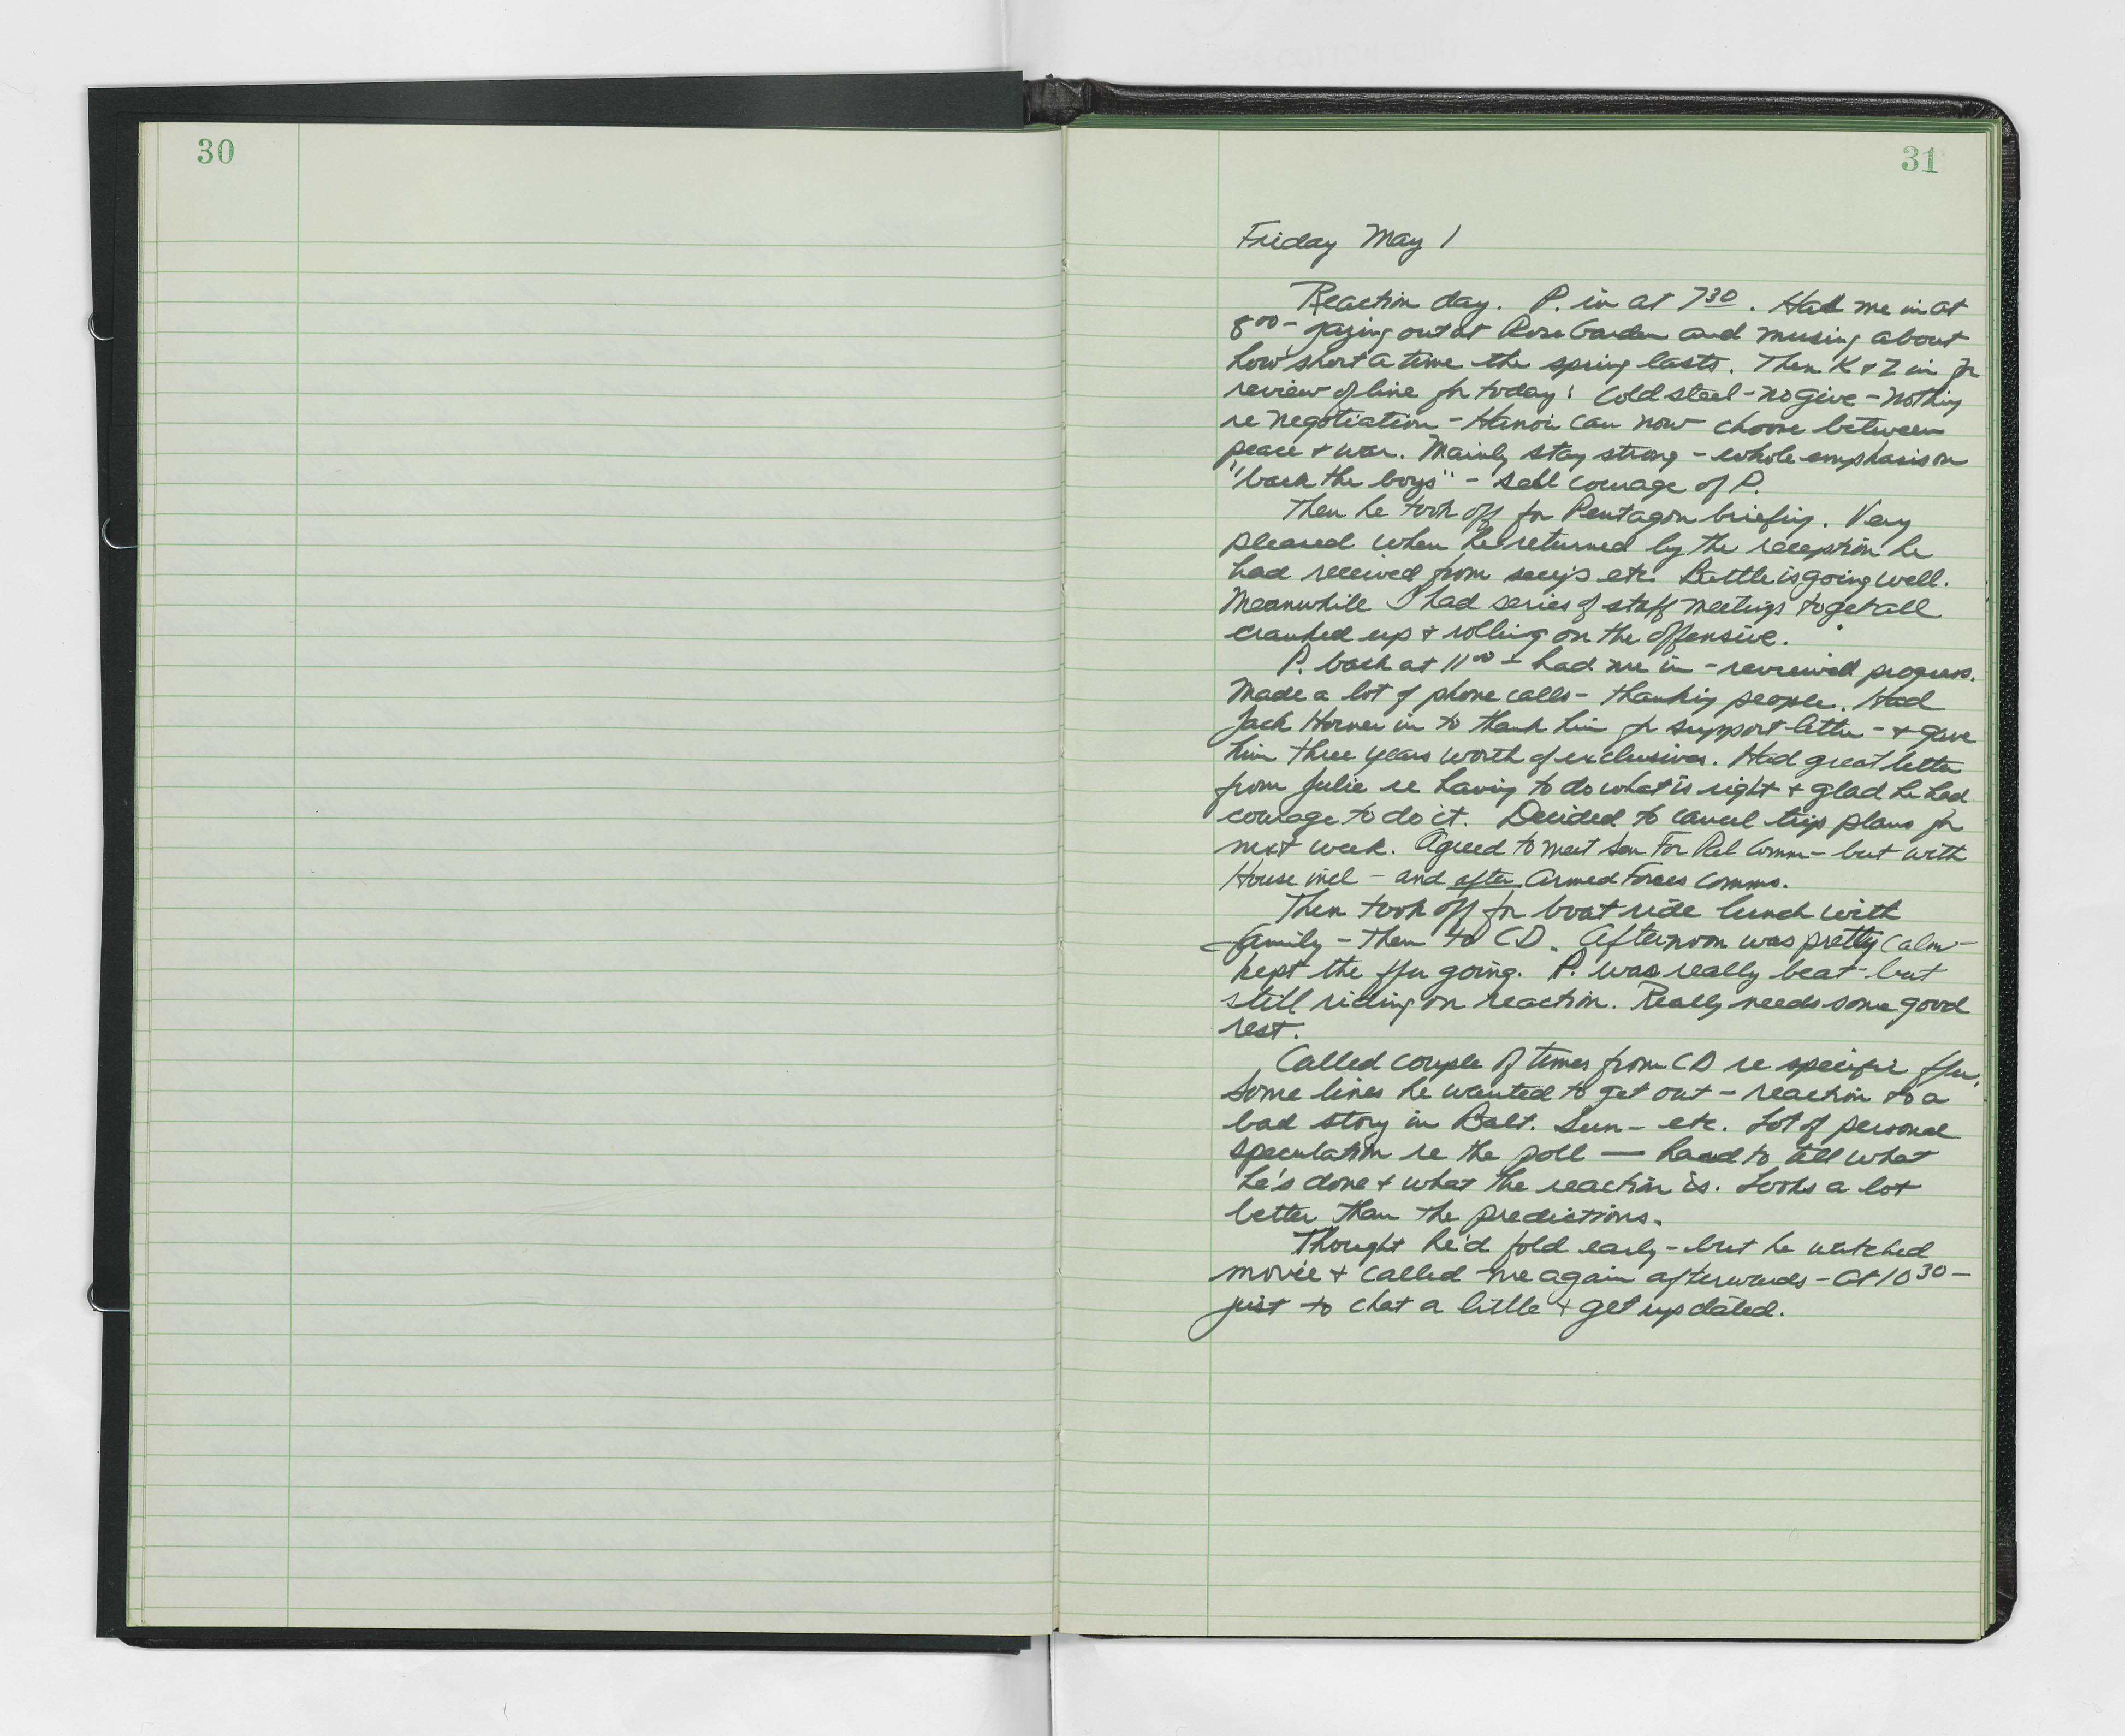 30
31
Friday May 1
Reaction day. P. in at 7 30. Had me in at
8 00 - gazing out at Rose Garden and musing about
how short a time the spring lasts. Then K + Z in for
review of line for today: Cold steel - no give - nothing
re negotiation - Hanoi can now choose between
peace + war. Mainly stay strong - whole emphasis on
"back the boys" - sell courage of P.
Then he took off for Pentagon briefing. Very
pleased when he returned by the reception he
had received from secy's etc. Battle is going well.
Meanwhile I had series of staff meetings to get all
cranked up + rolling on the offensive.
P. back at 11 00 - had me in - reviewed progress.
Made a lot of phone calls - thanking people. Had
Jack Horner in to thank him for support letter - + gave
him three years worth of exclusives. Had great letter
from Julie re having to do what is right + glad he had
courage to do it. Decided to cancel trip plans for
next week. Agreed to meet Sen For Rel Comm - but with
House incl - and after Armed Forces Comms.
Then took off for boat ride lunch with
family - then to CD. Afternoon was pretty calm -
kept the ffu going. P. was really beat - but
still riding on reaction. Really needs some good
rest.
Called couple of times from CD re specific ffu,
some lines he wanted to get out - reaction to a
bad story in Balt. Sun - etc. Lot of personal
speculation re the poll — hard to tell what
he's done + what the reaction is. Looks a lot
better than the predictions.
Thought he'd fold early - but he watched
movie + called me again afterwards - at 10 30 -
just to chat a little + get updated.